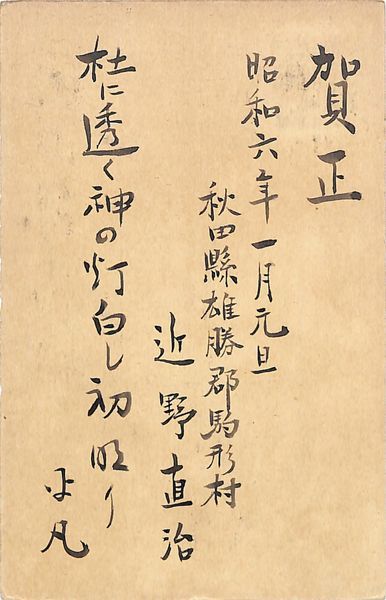 賀正
昭和六年一月元旦
秋田縣雄勝郡駒形村
近野直治
杜に透く神の灯白し初明り
平凡